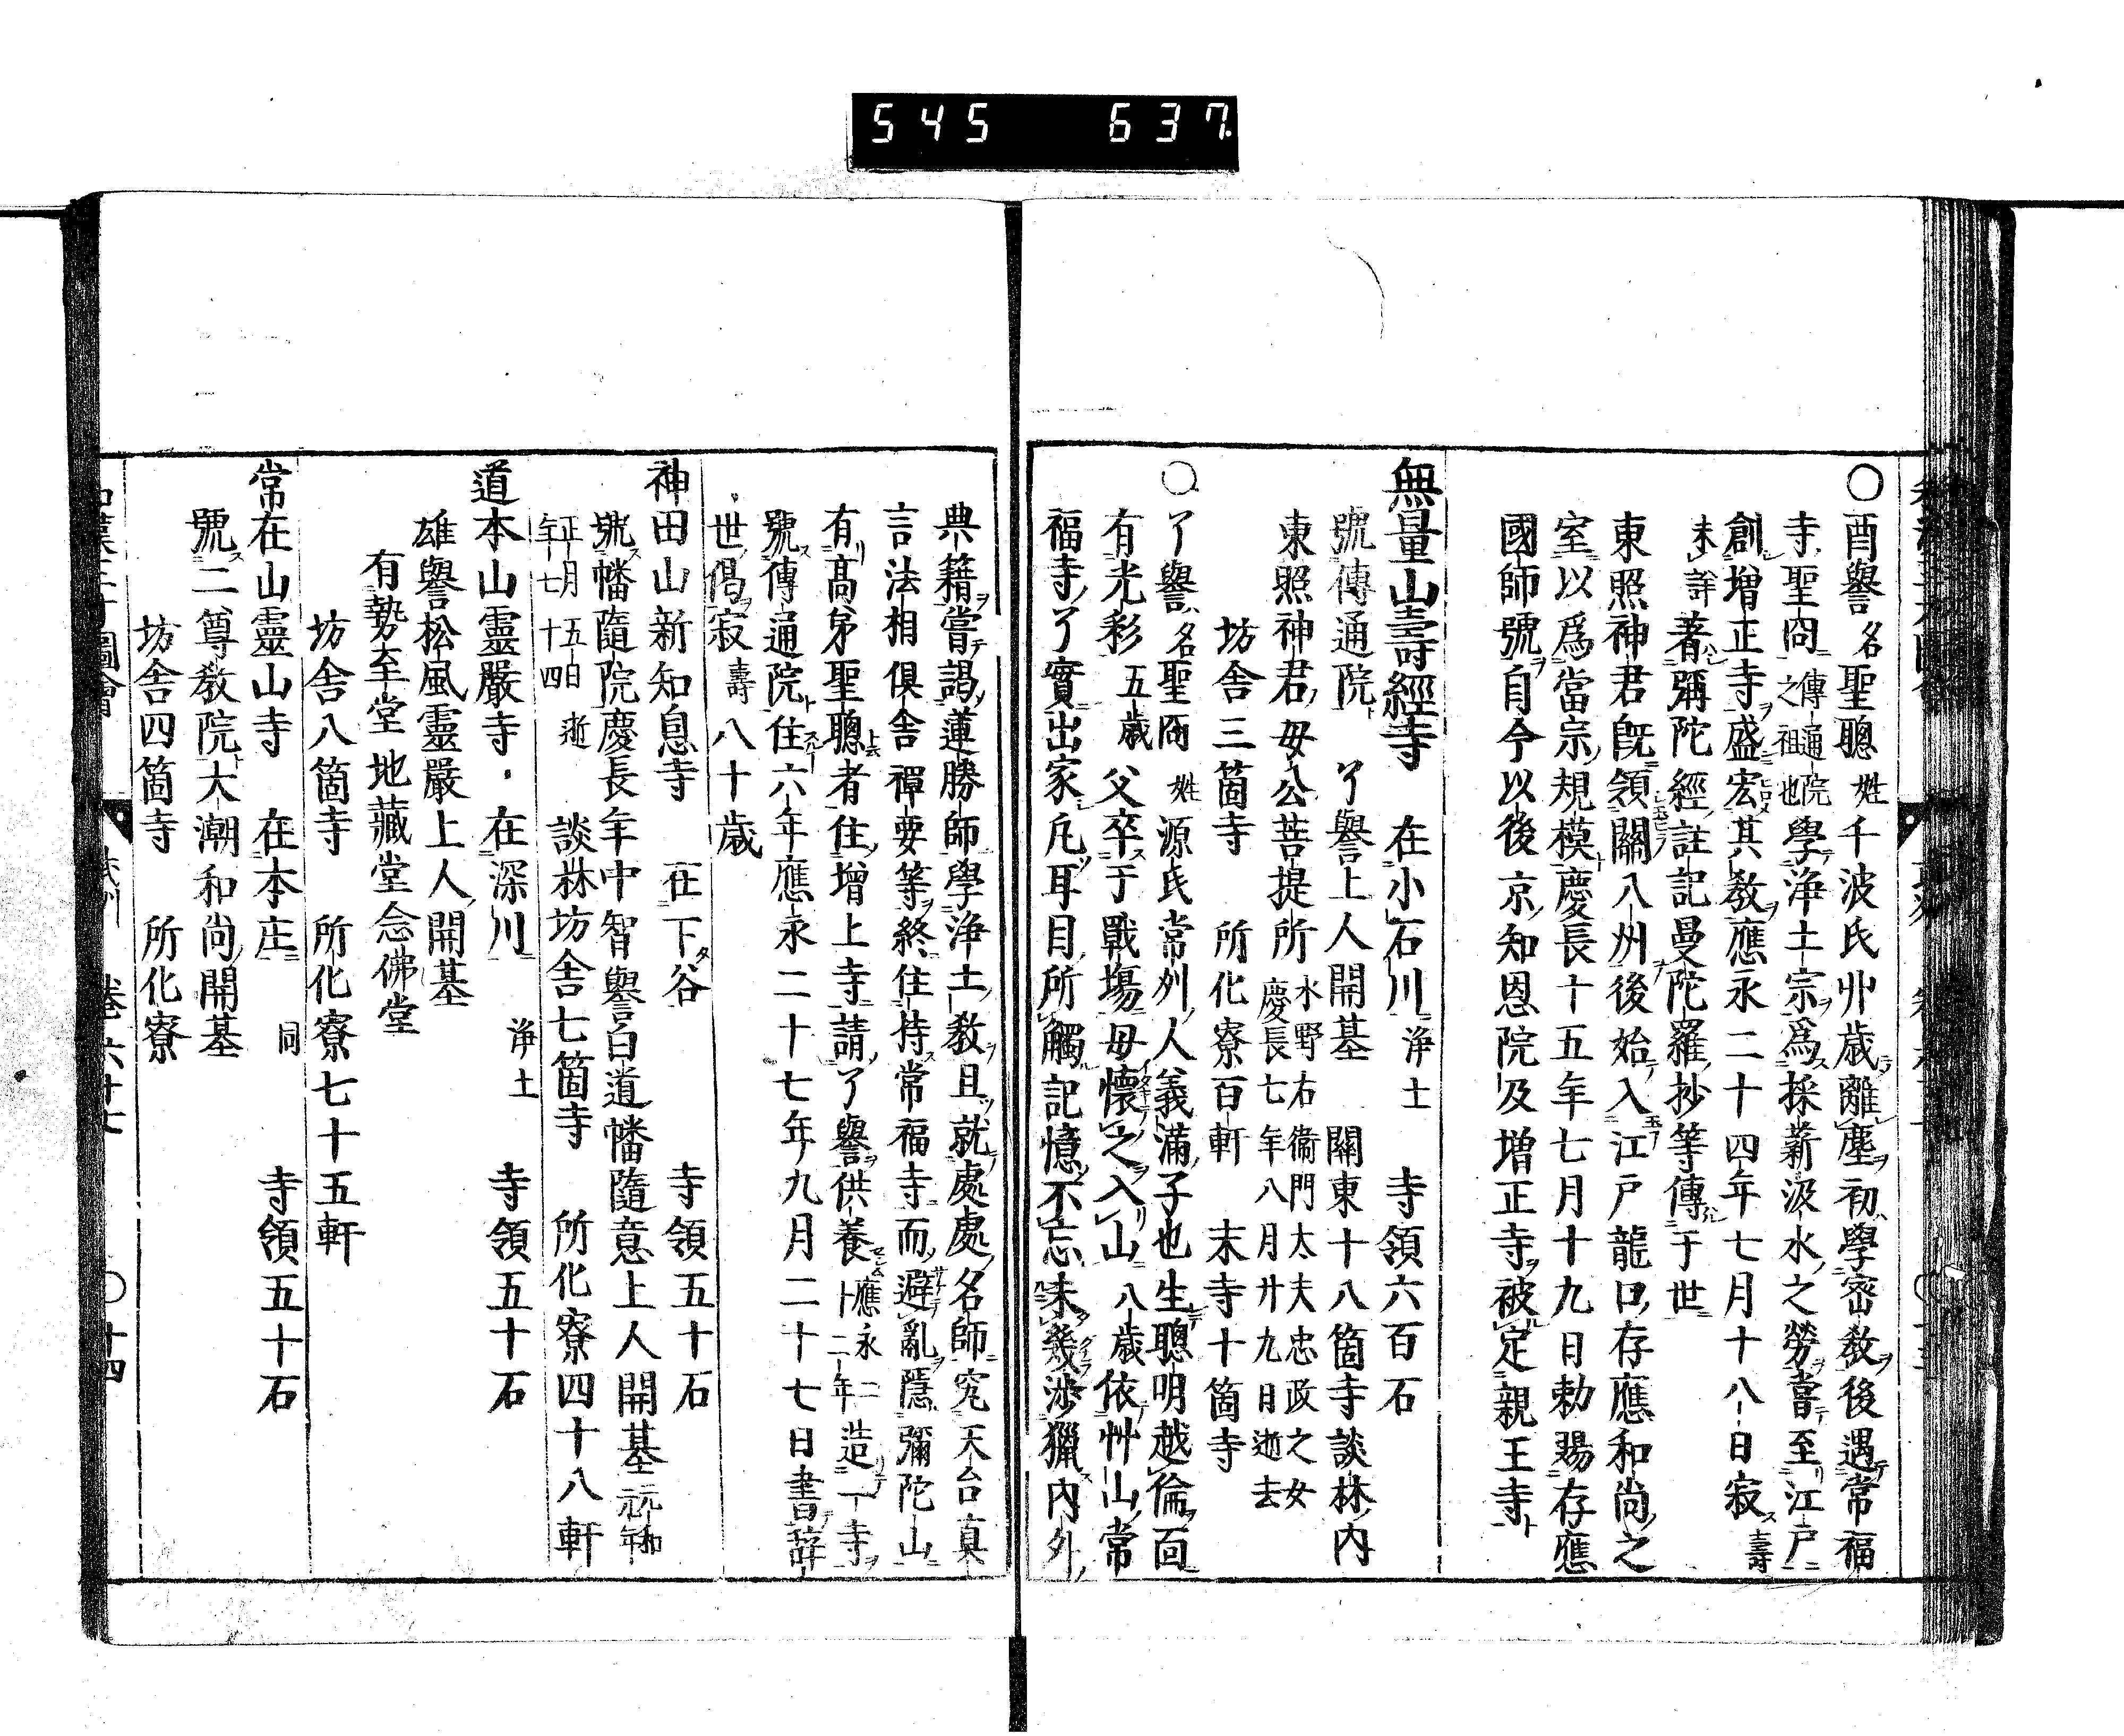 545 637
○酉譽名聖聰姓千波氏丱歳離塵初學密教後遇常福
寺聖冏傳通院之祖也學浄土宗爲採薪汲水之勞嘗至江戸
創増正寺盛宏其教應永二十四年七月十八日寂壽
未詳著彌陀經註記曼陀羅抄等傳于世
東照神君既領關八州後始入江戸龍口存應和尚之
室以爲當宗規模慶長十五年七月十九日勅賜存應
國師號自今以後京知恩院及増正寺被定親王寺
無量山壽經寺 在小石川 浄土 寺領六百石
號傳通院 了譽上人開基 關東十八箇寺談林内
東照神君母公菩提所水野右衞門太夫忠政之女慶長七年八月廿九日逝去
坊舎三箇寺 所化寮百軒 末寺十箇寺
○了譽名聖冏姓源氏常州人義滿子也生聰明越倫面
有光彩五歳父卒于戰場母懷之入山八歳依艸山常
福寺了實出家凡耳目所觸記憶不忘未幾渉獵内外
典籍嘗謁蓮勝師學浄土教且就處處名師究天台真
言法相倶舎禪要等終住持常福寺而避亂隱彌陀山
有髙弟聖聰者住増上寺請了譽供養應永二十二年造一寺
號傳通院住六年應永二十七年九月二十七日書辞
世偈寂壽八十歳
神田山新知息寺 在下谷 寺領五十石
號幡隨院慶長年中智譽白道幡隨意上人開基元和元年
正月五日逝年七十四 談林坊舎七箇寺 所化寮四十八軒
道本山靈嚴寺 在深川 浄土 寺領五十石
雄譽松風靈嚴上人開基
有勢至堂地藏堂念佛堂
坊舎八箇寺 所化寮七十五軒
常在山靈山寺 在本庄 同 寺領五十石
號二尊教院大潮和尚開基
坊舎四箇寺 所化寮
卷六十七 ○十四